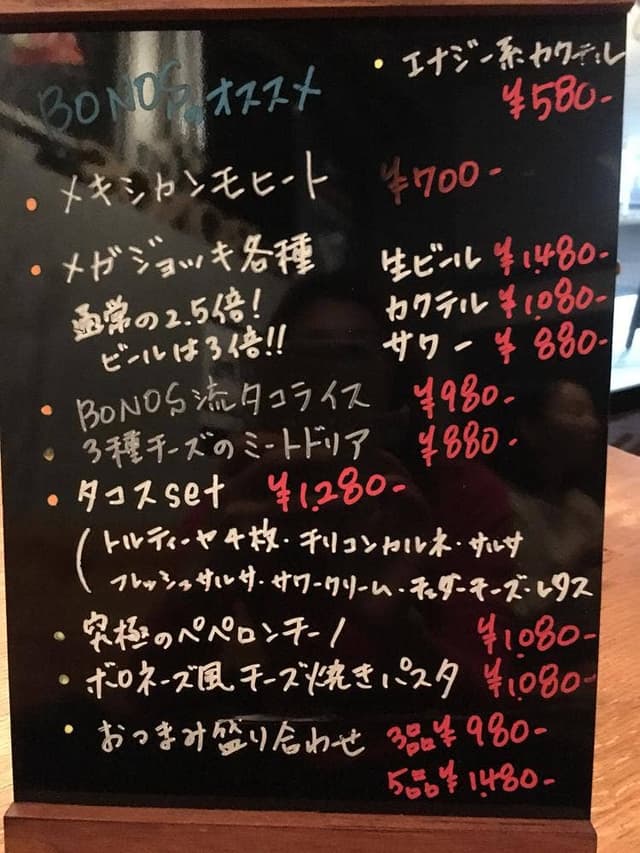 BONOS。オススメ
・エナジー系カクテル
¥580-
・メキシカンモヒート ¥700-
・メガジョッキ各種 生ビール ¥1,480-
通常の2.5倍! カクテル ¥1,080-
ビールは3倍!! サワー ¥880-
・BONOS流タコライス ¥980-
・3種チーズのミートドリア ¥880-
・タコスset ¥1,280-
(トルティーヤ4枚・チリコンカルネ・サルサ
フレッシュサルサ・サワークリーム・チェダーチーズ・レタス
・究極のペペロンチーノ ¥1,080-
・ボロネーズ風チーズ焼きパスタ ¥1,080-
・おつまみ盛り合わせ 3品¥980-
5品¥1,480-